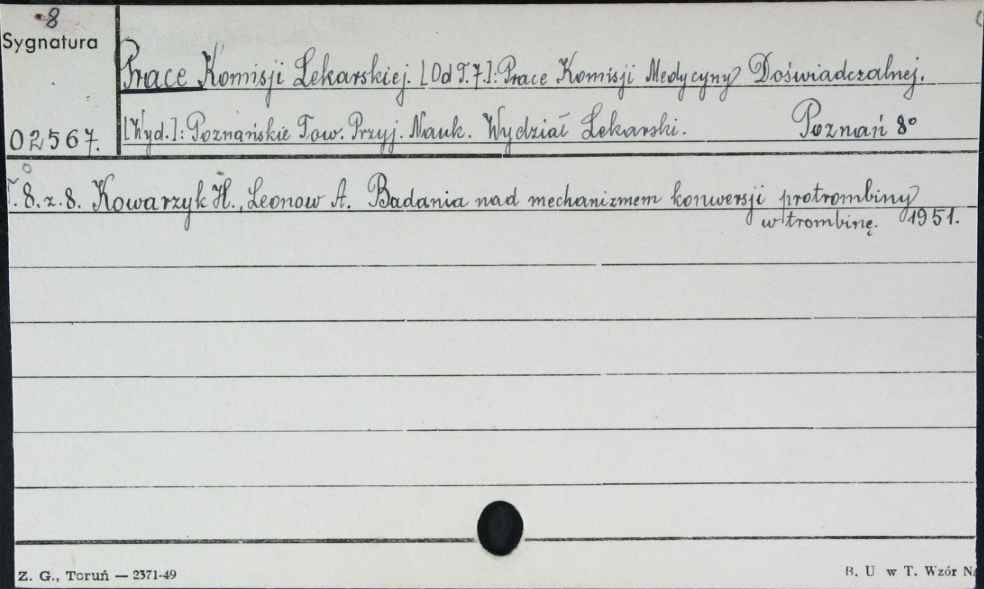 8
Sygnatura
Prace Komisji Lekarskiej. [Od T.7]: Prace Komisji Medycyny Doświadczalnej.
02567.
[Wyd.]: Poznańskie Tow. Przyj. Nauk. Wydział Lekarski. Poznań 8°
T. 8. z. 8. Kowarzyk H., Leonow A. Badania nad mechanizmem konwersji protrombiny
w trombinę. 1951.
Z. G., Toruń — 2371-49
B. U w T. Wzór